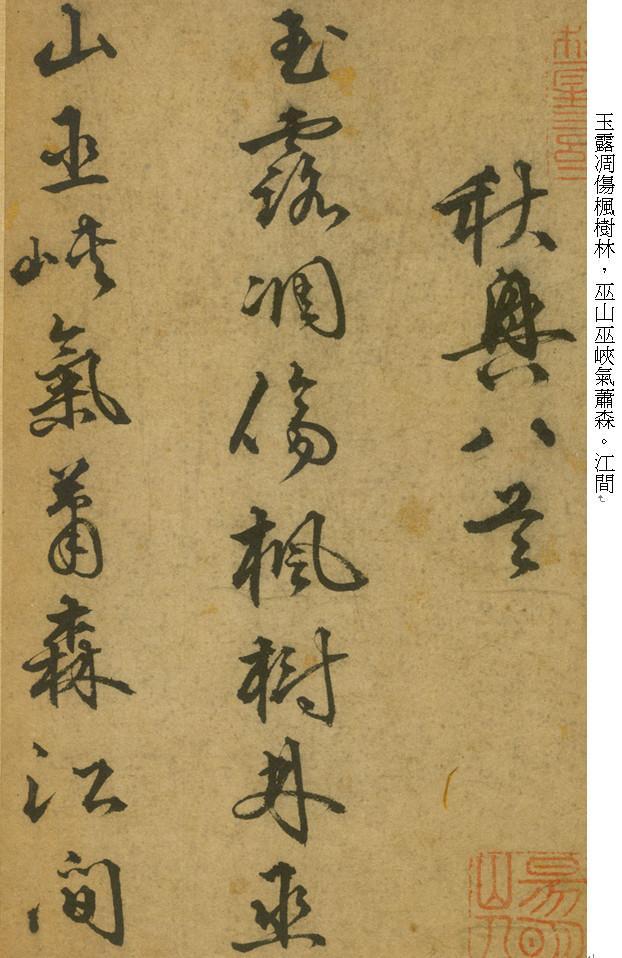 玉露凋傷楓樹林，巫山巫峽氣蕭森。江間
秋興八首
玉露凋傷楓樹林巫
山巫峽氣蕭森江間